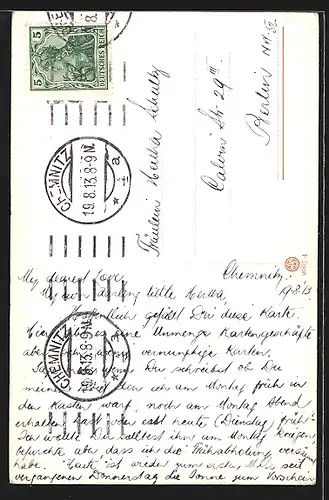 5
5
DEUTSCHES REICH
CHEMNITZ
19.8.13.8-9N.
a
Fräulein Hertha
Calvin Str. 29 III
Berlin NW. 52.
CHEMNITZ
19.8.13.8-9N.
a
Chemnitz,
19.8.13.
My dearest love,
my own darling little Hertha,
Hoffentlich gefällt Dir diese Karte.
Hier gibt es eine Unmenge Kartengeschäfte
aber keine vernünftige Karten.
wenn Du schreibst ob Du
meinen den ich am Montag früh in
den Kasten warf, noch am Montag Abend
erhalten hast oder erst heute (Dienstag) früh?
Ich wollte Du solltest ihn am Montag kriegen,
befürchte aber dass ich die Frühabholung versäumt
habe. Heute ist wieder zum ersten Mal seit
vergangenen Donnerstag die Sonne zum Vorschein